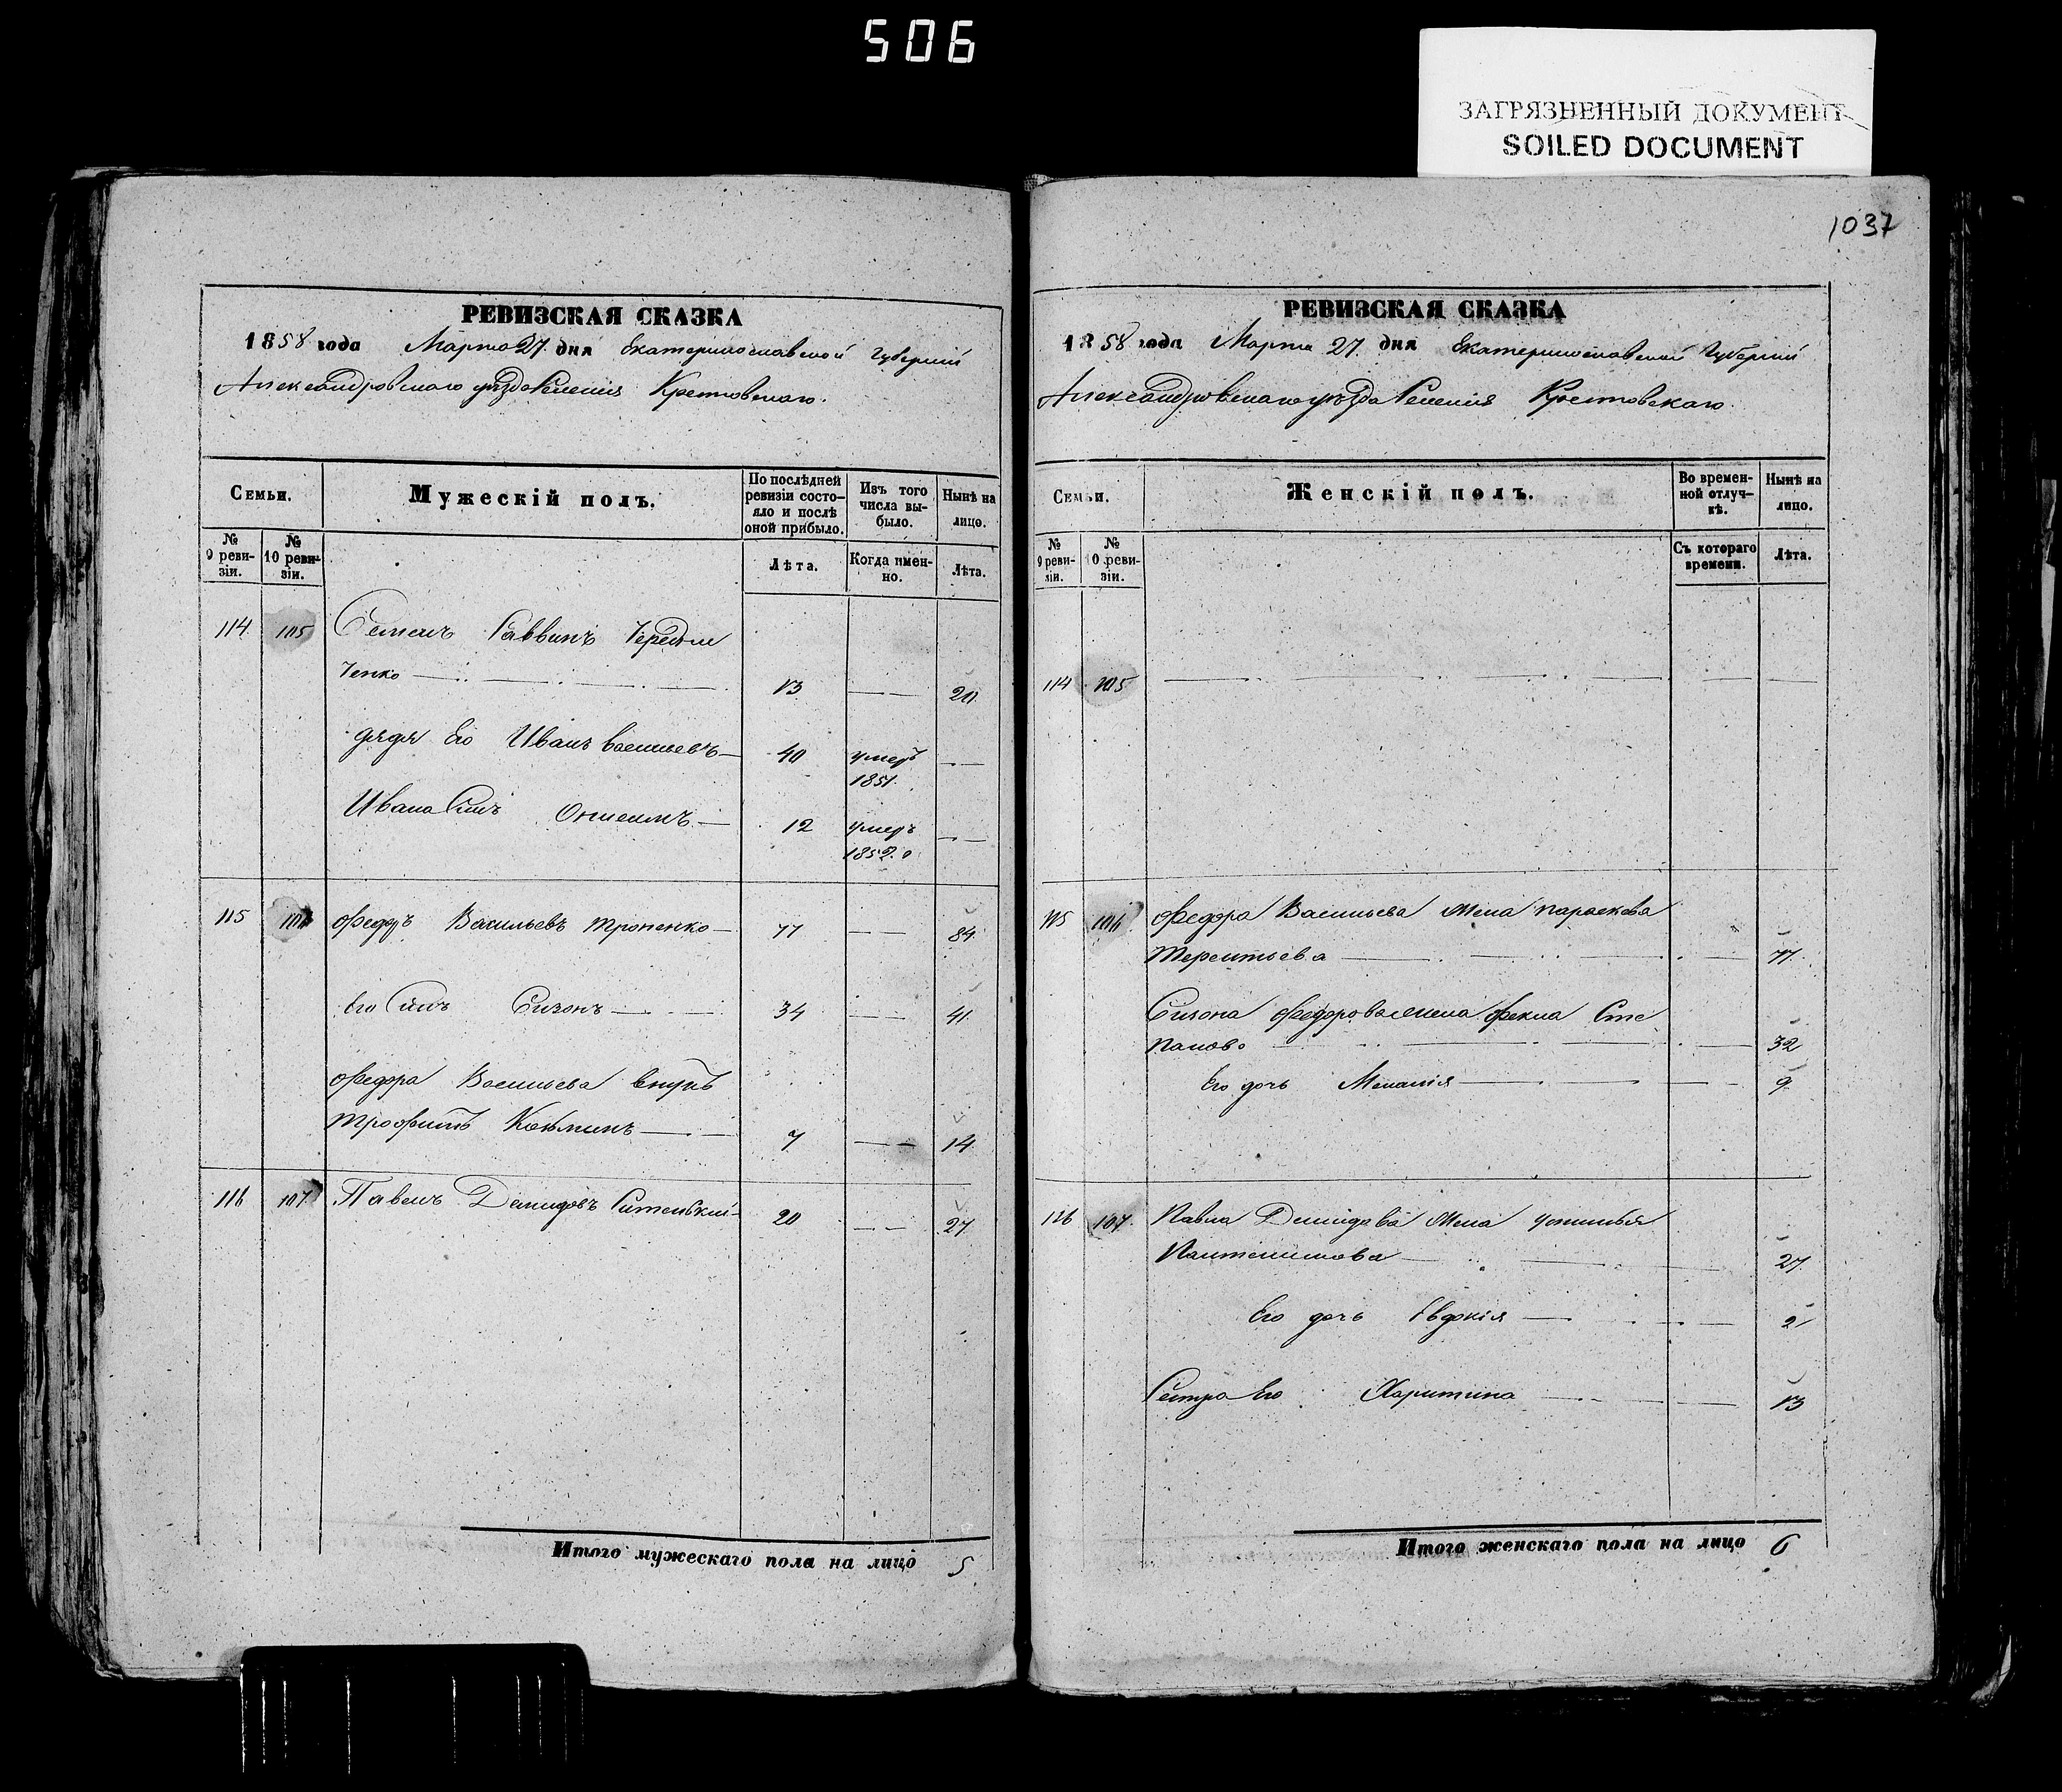 506
ЗАГРЯЗНЕННЫЙ ДОКУМЕНТ
SOILED DOCUMENT
РЕВИЗСКАЯ СКАЗКА
1858 года Марта 27. дня Екатеринославской Губерніи
Александровскаго уѣзда Селенія Крестовскаго.
Семьи.
Мужескій полъ.
По послѣдней ревизіи состо-
яло и послѣ
оной прибыло.
Изъ того
числа вы-
было.
Нынѣ на
лицо.
№
9 реви-
зіи.
№
10 реви-
зіи.
Лѣта.
Когда имен-
но.
Лѣта.
114 105 Семенъ Саввинъ
ченко 13 20
дядя Его Иванъ Васильевъ 40 умеръ
1851.
Ивана Сынъ 12 умеръ
1852.
115 106 Федоръ Васильевъ Тропенко 77 84
Его Сынъ Сизонъ 34 41
Федора Васильева внукъ
Трофимъ Козминъ 7 14
116 107 Павелъ Демидовъ 20 27
Итого мужескаго пола на лицо 5
1037
РЕВИЗСКАЯ СКАЗКА
1858 года Марта 27. дня Екатеринославской Губерніи
Александровскаго уѣзда Селенія Крестовскаго.
Семьи.
Женскій полъ.
Во времен-
ной отлуч-
кѣ.
Нынѣ на
лицо.
№
9 реви-
зіи.
№
10 реви-
зіи.
Съ котораго
времени.
Лѣта.
114 105
115 106 Федора Васильева жена Параскева
Терентьева 77
Сизона Федорова жена Фекла Сте
панова 32
Его дочь Меланія 9
116 107 Павла Демидова жена Устинья
27
Его дочь Евдокія 2
Сестра Его Харитина 13
Итого женскаго пола на лицо 6